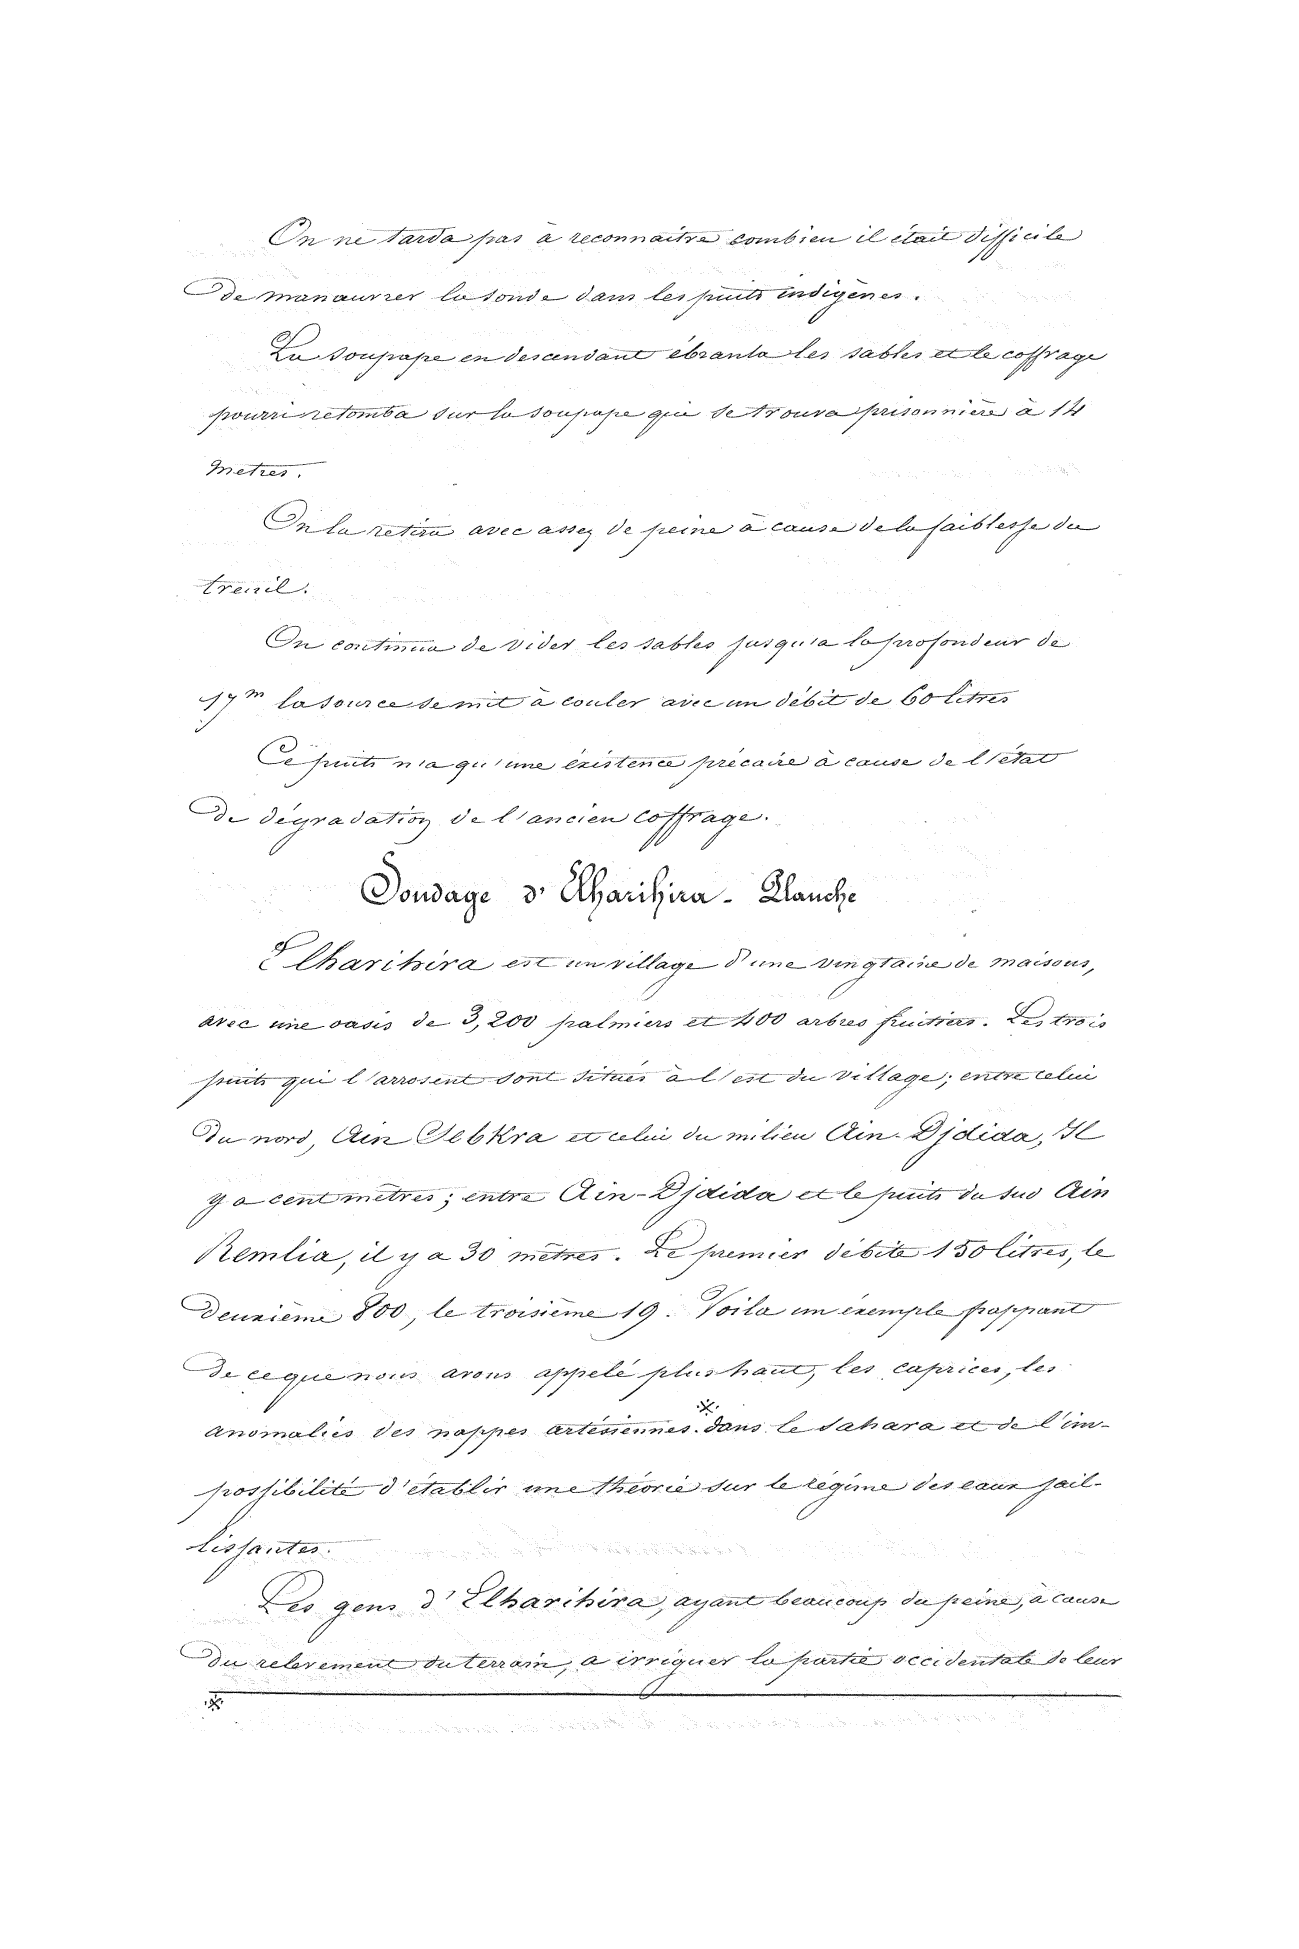 On ne tarda pas à reconnaitre combien il était difficile
de manœuvrer la sonde dans les puits indigènes.
La soupape en descendant ébranla les sables et le coffrage
pourri retomba sur la soupape qui se trouva prisonnière à 14
metres.
On la retira avec assez de peine à cause de la faiblesse du
treuil.
On continua de vider les sables jusqu'a la profondeur de
17m la source se mit à couler avec un débit de 60 litres
Ce puits n'a qu'une éxistence précaire à cause de l'état
de dégradation de l'ancien coffrage.
Sondage d'Elharihira - Planche
Elharihira est un village d'une vingtaine de maisons,
avec une oasis de 3,200 palmiers et 400 arbres fruitiers. Les trois
puits qui l'arrosent sont situés à l'est du village; entre celui
du nord, Ain Sebkra et celui du milieu Ain-Djdida, Il
y a cent mètres; entre Ain-Djdida et le puits du sud Ain
Remlia, il y a 30 mètres. Le premier débite 150 litres, le
deuxième 800, le troisième 19. Voila un éxemple frappant
de ce que nous avons appelé plus haut, les caprices, les
anomaliés des nappes artésiennes ※ dans le Sahara et de l'im-
possibilité d'établir une théorie sur le régime des eaux jail-
lissantes.
Les gens d'Elharihira, ayant beaucoup du peine, à cause
du relevement du terrain, a irriguer la partie occidentale de leur
※